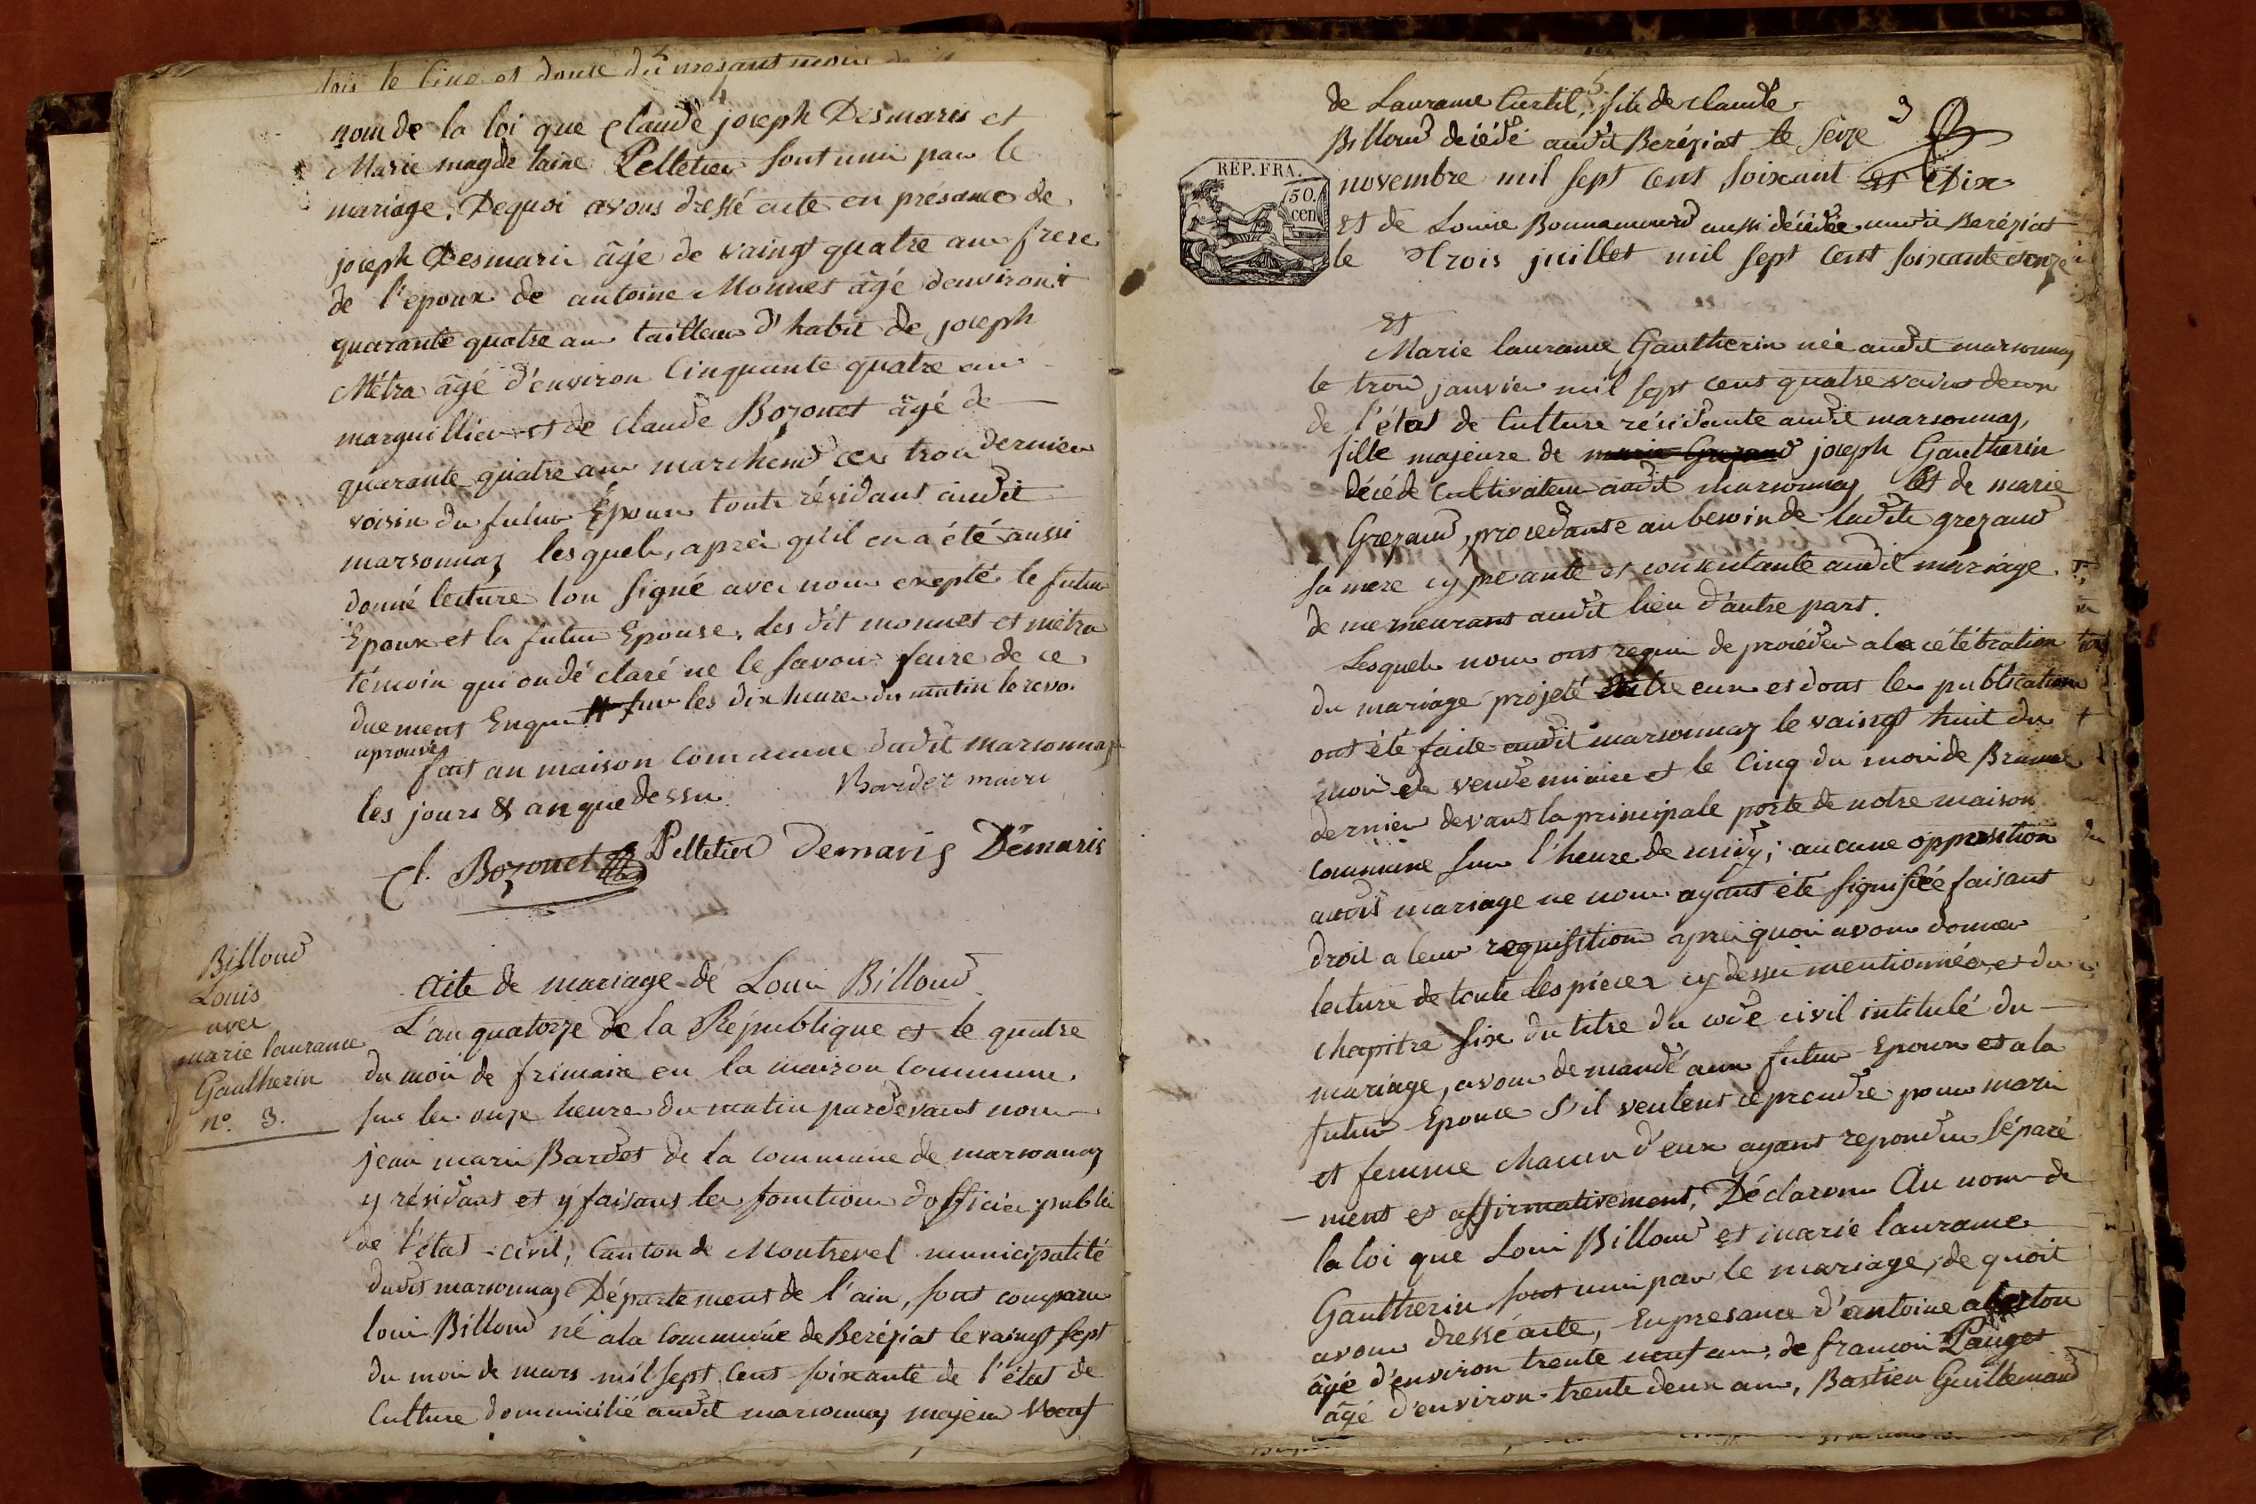 4
nom de la loi que Claude joseph Desmaris et
Marie magde laine Pelletier sont unis par le
mariage. Dequoi avons dressé acte en présance de
joseph Desmaris âgé de vaingt quatre ans frere
de l'epoux de antoine Monnet âgé denviront
quarante quatre ans tailleur d'habit de joseph
Métra âgé d'environ Cinquante quatre ans
marguillier et de Claude Bozonet âgé de
quarante quatre ans marchend ces trois dernier
voisin du futur Époux touts résidant audit
marsonnaz lesquels, après qu'il en a été aussi
donné lecture lon signé avec nous exepté le futur
Epoux et la futur Epouse, les dit monnet et métra
témoin qui on déclaré ne le savoir faire de ce
duement Enquis sur les dix heure du matin
aprouvé
fait an maison commune dudit marsonnaz
les jours & an que dessu Bardet maire
Cl. Bozonet Pelletier Demaris Démaris
Billoud
Louis
avec
marie laurance
Gautherin
n°. 3.
Acte de mariage de Louis Billoud
L'an quatorze de la République et le quatre
du mois de frimaire en la maison Commune
sur les onze heure du matin pardevant nous
jean marie Bardet de la commune de marsonnaz
y résidant et y faisant les fonctions d'officier public
de l'état civil, Canton de Montrevel municipalité
dudit marsonnaz Département de l'ain, sont comparu
louis Billoud né a la Commune de Bereziat le vaingt sept
du mois de mars mil sept Cent soixante de l'état de
Culture dommicilié audit marsonnaz majeur veuf
5
3
de Laurance Curtil, fils de claude
Billoud décédé audit Beréziat le seize
novembre mil sept Cent soixant et Dix
REP. FRA.
50.
cen
et de Louise Bonnamour aussi décédée audit Bereziat
le Trois juillet mil sept Cent soixante et onze
Et
Marie laurance Gautherin née audit marsonnaz
le trois janvier mil sept cent quatre vaint deux
de l'état de Culture résidante audit marsonnaz,
fille majeure de marie Grezaud joseph Gautherin
décédé Cultivateur audit marsonnaz Et de marie
Grezaud, procedante au besoin de ladite grezaud
sa mere cy presante et consentante audit mariage
de memeurant audit lieu d'autre part.
Lesquels nous ont requis de procéder a la célébration
du mariage projeté entre eux et dont les publication
ont été faite audit marsonnaz le vaingt huit du
mois de vendemiaire et le Cinq du mois de Brumai
dernier devant la principale porte de notre maison
commune sur l'heure de midy; aucune opposition
audit mariage ne nous ayant été signifiée faisant
droit a leur requisition après quoi avons donner
lecture de toute les pièces cy dessu mentionnées, et du
chapitre six du titre du code civil intitulé du
mariage, avons demandé aux futur Epoux et a la
futur Epouse s'il veulent ce prendre pour mari
et femme chacun d'eux ayant repondu séparé
ment et affirmativement, Déclarons Au nom de
la loi que Louis Billoud et marie laurance
Gautherin sont unis par le mariage, de quoit
avons dressé acte, En presance d'antoine
âgé d'environ trente neuf ans, de francois Pauget
âgé d'environ trente deux ans, Bastien Guillemaud